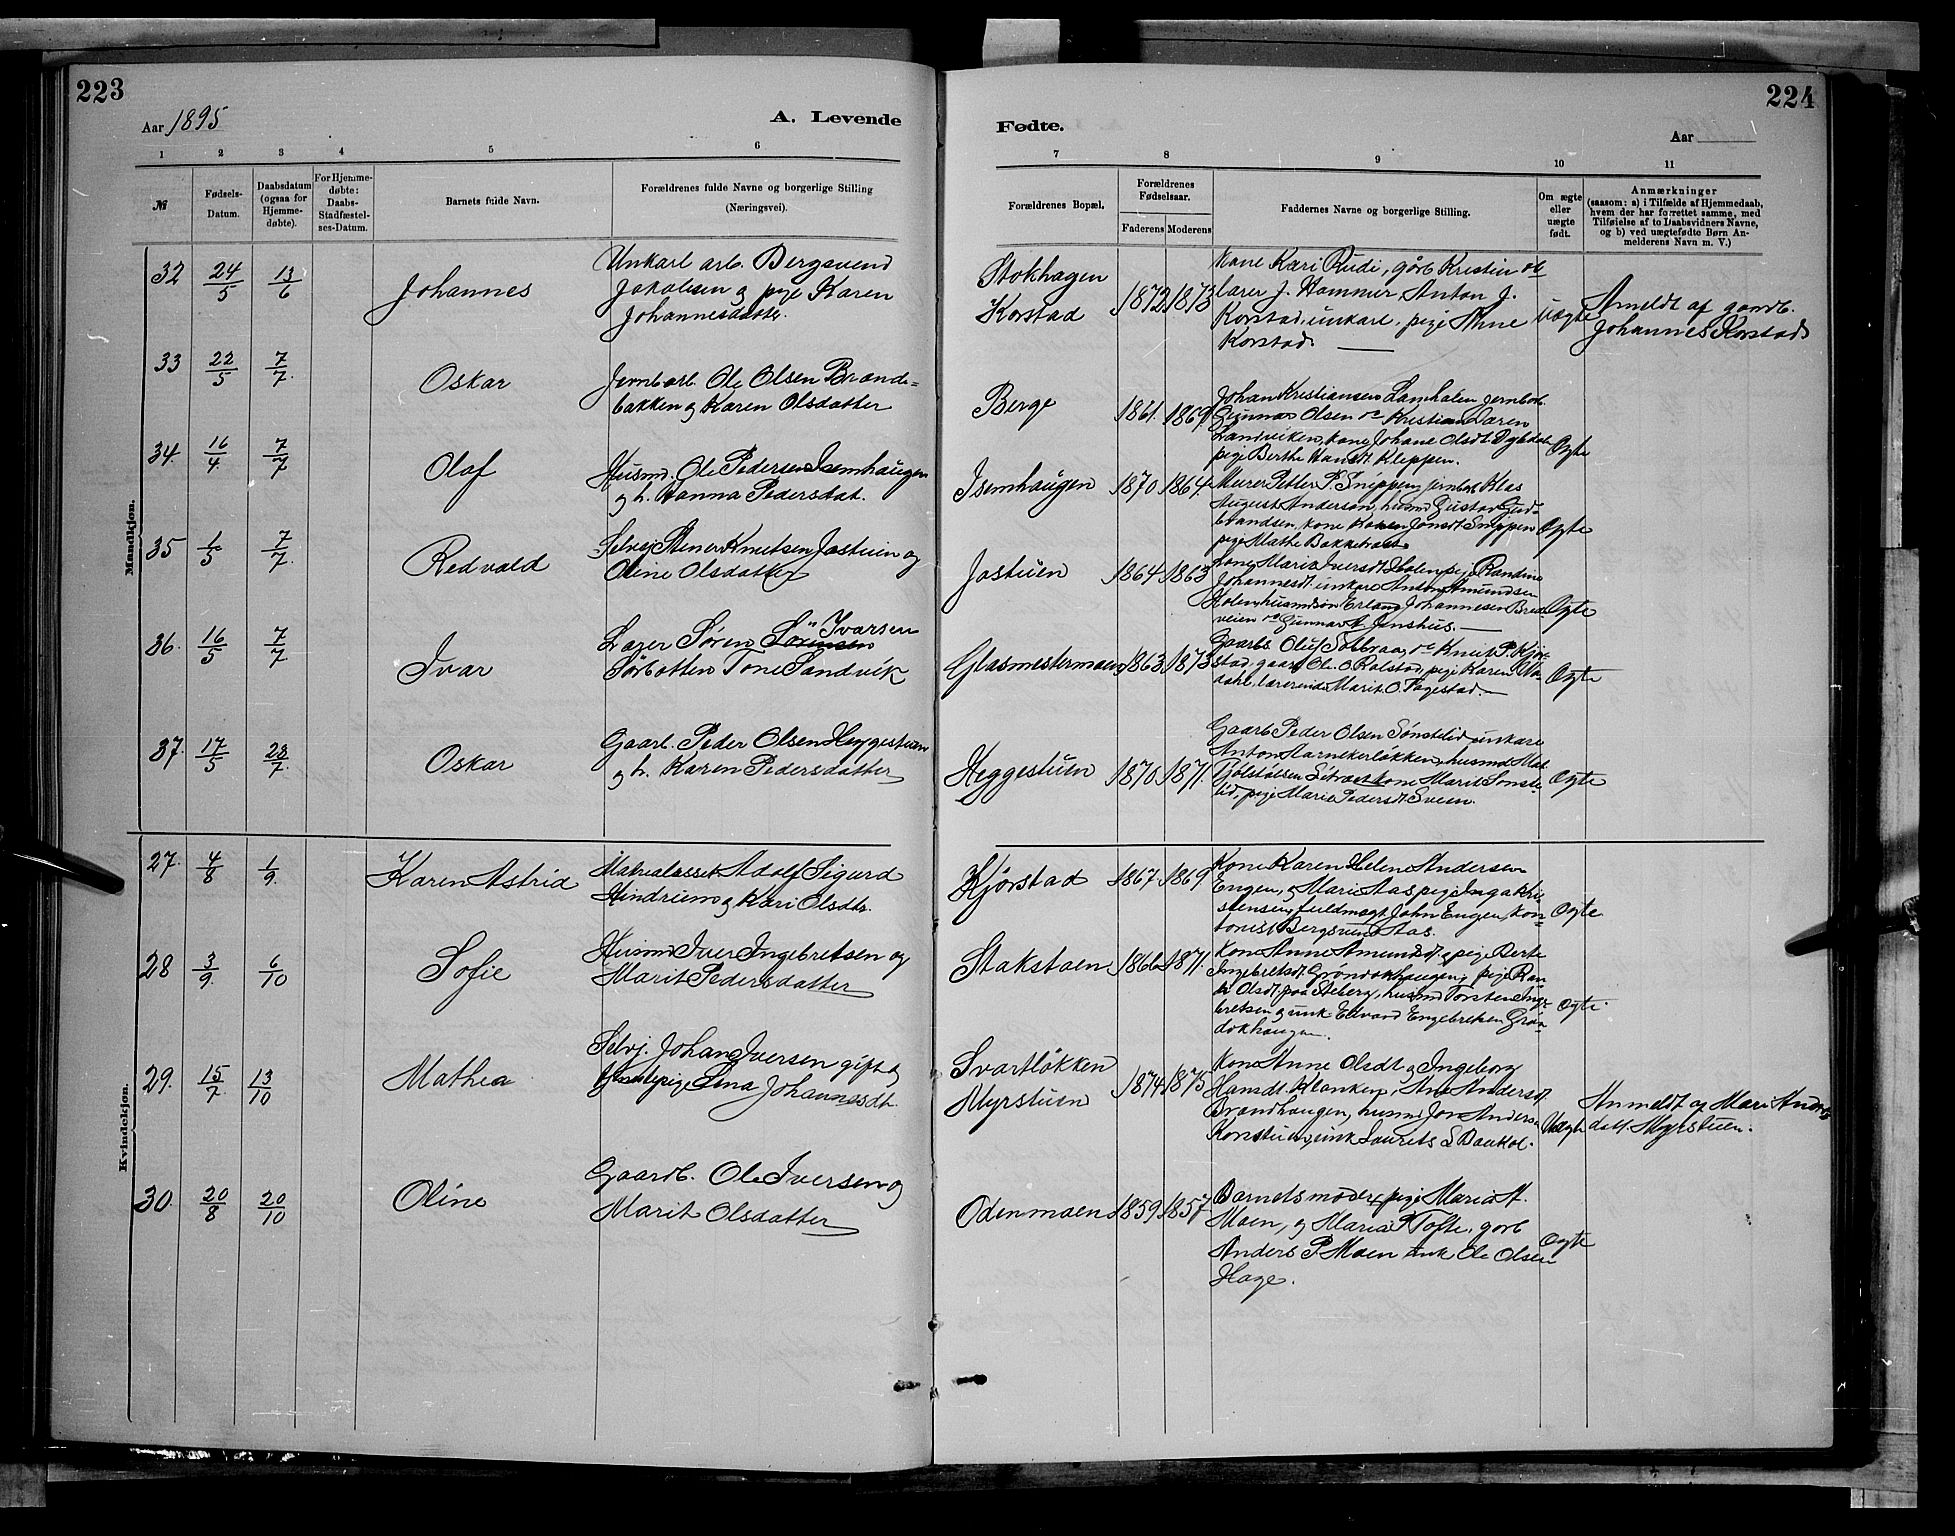 223
224
Aar 1895
A. Levende
Fødte.
Aar
1 2 3 4 5 6 7 8 9 10 11
№
Fødsels-
Datum.
Daabsdatum
(ogsaa for
Hjemme-
døbte).
For Hjemme-
døbte:
Daabs-
Stadfæstel-
ses-Datum.
Barnets fulde Navn.
Forældrenes fulde Navne og borgerlige Stilling
(Næringsvei).
Forældrenes Bopæl.
Forældrenes
Fødselsaar.
Faderens Moderens
Faddernes Navne og borgerlige Stilling.
Om ægte
eller
uægte
født.
Anmærkninger
(saasom: a) i Tilfælde af Hjemmedaab,
hvem der har forrettet samme, med
Tilføielse af to Daabsvidners Navne,
og b) ved uægtefødte Børn An-
melderens Navn m. V.)
Mandkjøn.
32 24/5 13/6
Johannes
Unkarl arb. Bergsvend
Jakobsen og pige Karen
Johannesdatter.
Stokhagen
Korstad
1872 1873
Kone Kari Rudi, gårb Kristen
lærer J. Hammer Anton J.
Korstad, unkarl, pige Anne
Korstad.
uægte
Anmeldt af gaardb.
Johannes Korstad
33 22/5 7/7
Oskar
Jernbarb. Ole Olsen Brande-
bakken og Karen Olsdatter
Berge
1861 1869
Johan Kristiansen jernbarb.
Gunnar Olsen Kristian
Landviken, kone Johane Olsdt
pige Berthe Hansdt Kleppen.
Ægte
34. 16/4 7/7
Olaf
Husmd. Ole Pedersen Isemhaugen
og h. Hanna Pedersdat.
Isemhaugen
1870 1864
Murer Petter P. Snippen jernbarb Klas
August Anderson, husmd Gustav Gud-
brandsen, kone Karen Jonsdt Snippen
pige Mathe
Ægte
35 1/5 7/7
Redvald
Selvej Stener Knutsen Jostuen og
Oline Olsdatter
Jostuen
1864 1863
Kone Maria Iversdt Holen pige Randine
Johannesdt unkarl Anton Amundsen
Holen husmdsøn Erland Johannesen Bred-
veien Gunnar A. Jenshus.
Ægte
36. 16/5 7/7
Ivar
Lærer Søren Sørensen Ivarsen
Sørbotten Tone Sandvik
Glasmestermoen
1863 1873
Gaarb Oluf Solbraa Knut P. Kjør-
stad, gaarb Ole O. Ralstad, pige Karen
dahl, lærerinde Marit O. Fagestad.
Ægte
37. 17/5 28/7
Oskar
Gaarb. Peder Olsen Heggestuen
og h. Karen Pedersdatter
Heggestuen
1870 1871
Gaarb Peder Olsen Sønstelid unkarl
Anton husmd
kone Marit Sønste-
lid, pige Marie Pedersdt Sveen.
Ægte
Kvindekjøn.
27. 4/8 1/9
Karen Astrid
Adolf Sigurd
Hindrum og Kari Olsdtr.
Kjørstad
1867 1869
Kone Karen Helene Andersen
Engen, og Mari Aas pige Inga Kri-
stensen, fuldmægt. John Engen, kon-
torist Bergsvend Aas.
Ægte
28 3/9 6/10
Sofie
Husmd Iver Ingebretsen og
Marit Pedersdatter
Stakstoen
1866 1871
Kone Anne Amundsdt, pige Berte
Ingebretsdt Grøndokhaugen, pige Ran-
di Olsdt paa Steberg, husmd Torsten Inge-
bretsen og unk Edvard Engebretsen Grøn-
dokhaugen.
Ægte
29. 15/7 13/10
Mathea
Selvj. Johan Iversen gift og
pige Lina Johannesdt.
Svartløkken
Myrstuen
1874 1875
Kone Anne Olsdt og Ingeborg
Hansdt Ane Andersdt
Brandhaugen, husmd Jon Anders
Konstuen, unk Laurits S Baukol.
Uægte
Anmeldt af Mari Anders-
datt. Myrstuen.
30. 20/8 20/10
Oline
Gaardb. Ole Iversen og
Marit Olsdatter
Odenmoen
1859 1857
Barnets moder, pige Maria A.
Moen, og Maria P Tofte, gårb
Anders P. Moen unk Ole Olsen
Hage.
Ægte